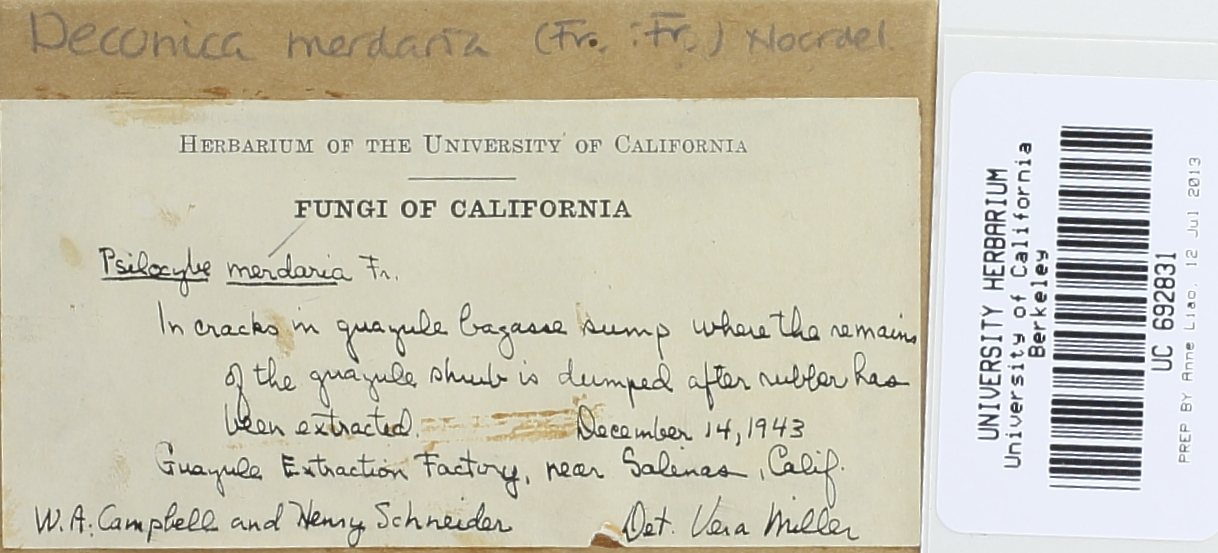 Deconica merdaria (Fr. : Fr.) Noordel.
HERBARIUM OF THE UNIVERSITY OF CALIFORNIA
FUNGI OF CALIFORNIA
Psilocybe merdaria Fr.
In cracks in guayule bagasse sump where the remains
of the guayule shrub is dumped after rubber has
been extracted. December 14, 1943
Guayule Extraction Factory, near Salinas, Calif.
W.A. Campbell and Henry Schneider Det. Vera Miller
UNIVERSITY HERBARIUM
University of California
Berkeley
UC 692831
PREP BY Anne Liao. 12 Jul 2013